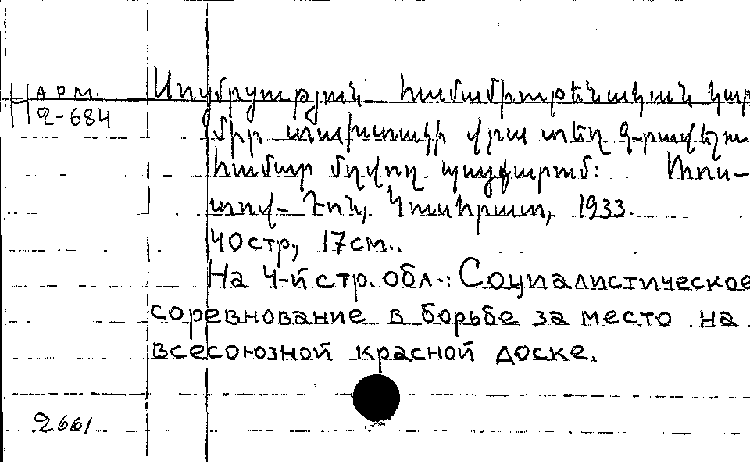 АРМ.
2-684
համամիութենական կար
միր տախտակի վրա տեղ գրավելու
համար մղվող պայքարում: Ռոս-
տով-Դոն, 1933.
40стр, 17см.
На 4-й стр. обл.: Социалистическое
соревнование в борьбе за место на
всесоюзной красной доске.
2661